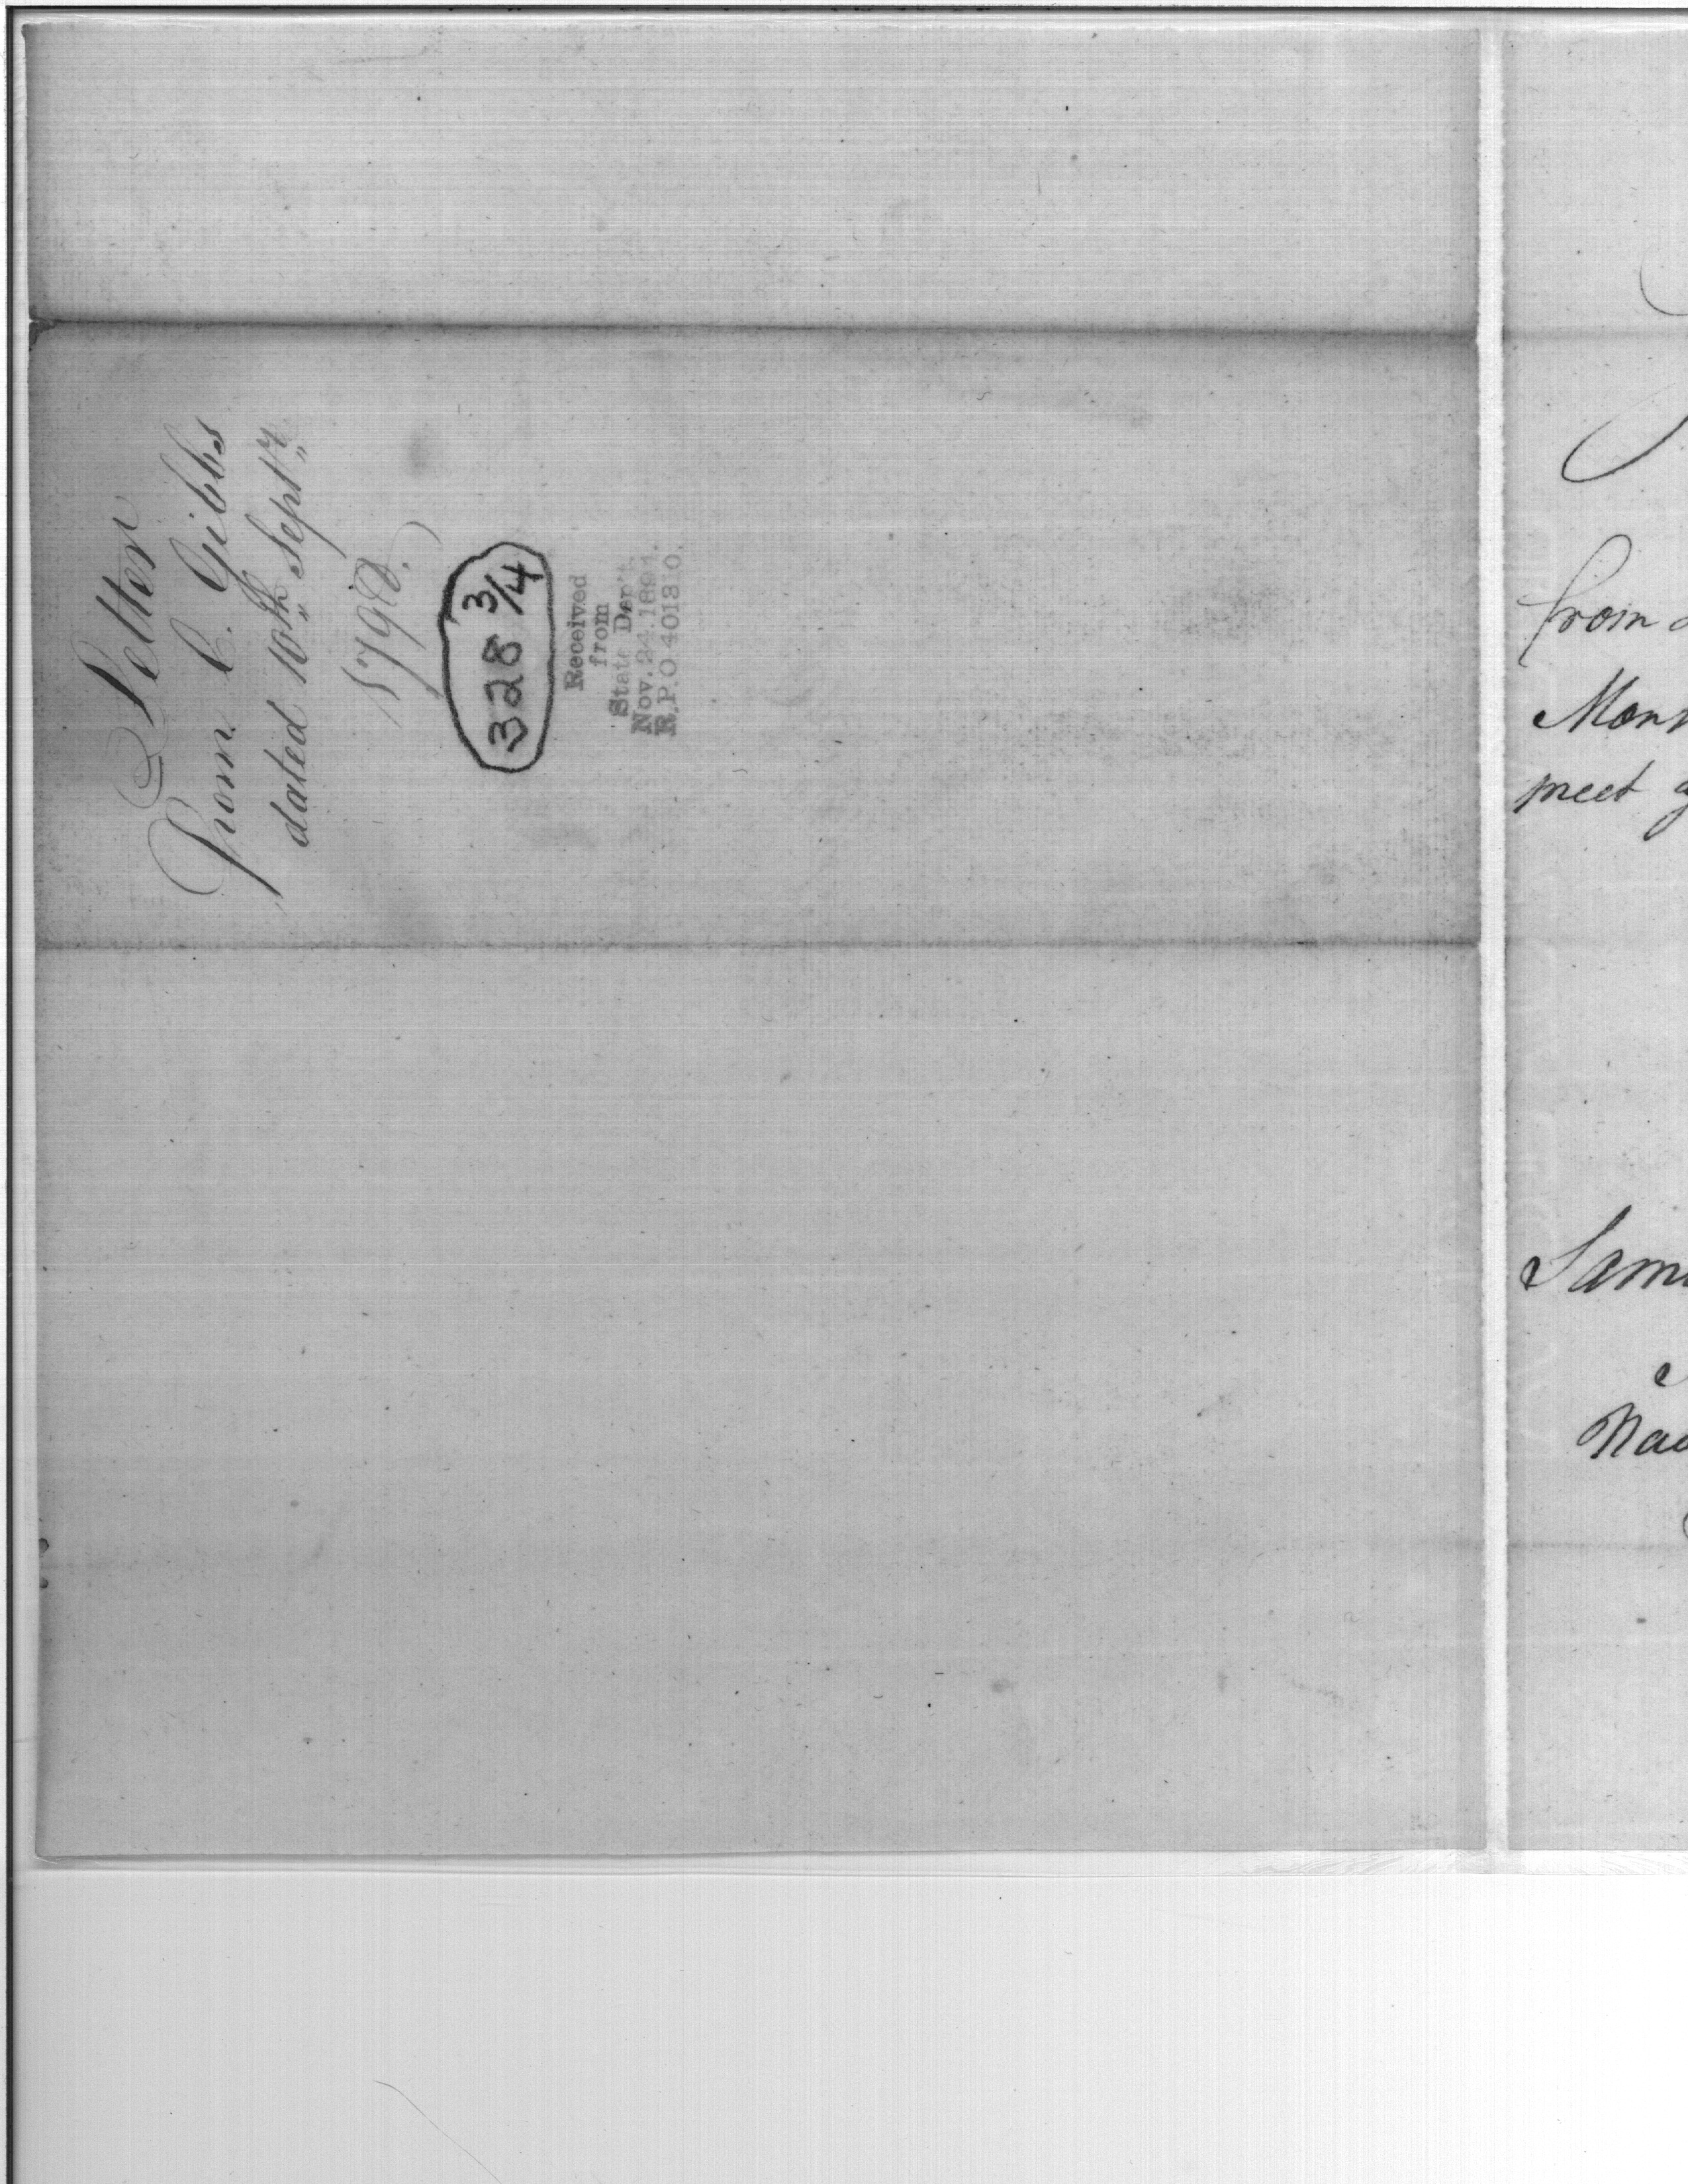 Letter
From C. Gibbs
dated 10th Septr
1798.
328 3/4
Received
from
State Dep't.
Nov. 24. 1894.
R. P. O 401310.
from
Mont
meet
Sam